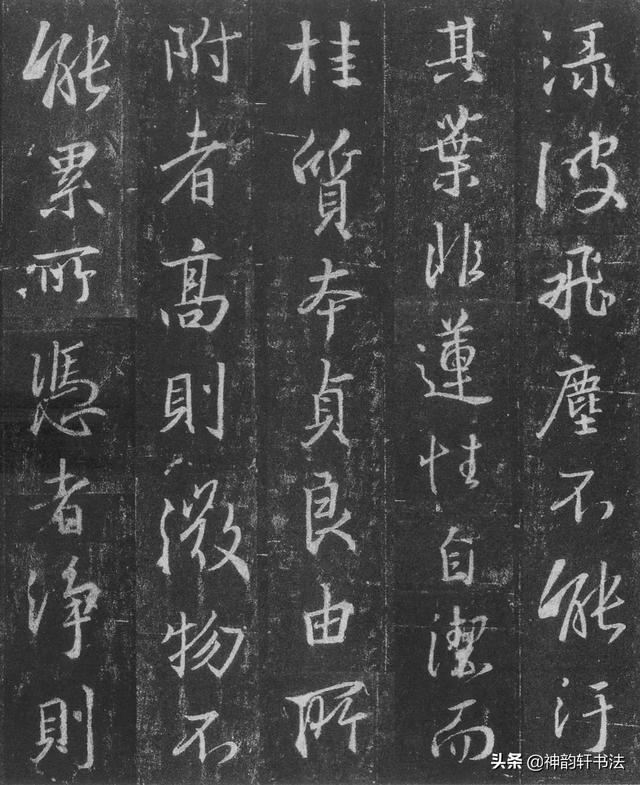 渌波飛塵不能汙
其葉非蓮性自潔而
桂質本貞良由所
附者高則微物不
能累所憑者淨則
头条 @神韵轩书法